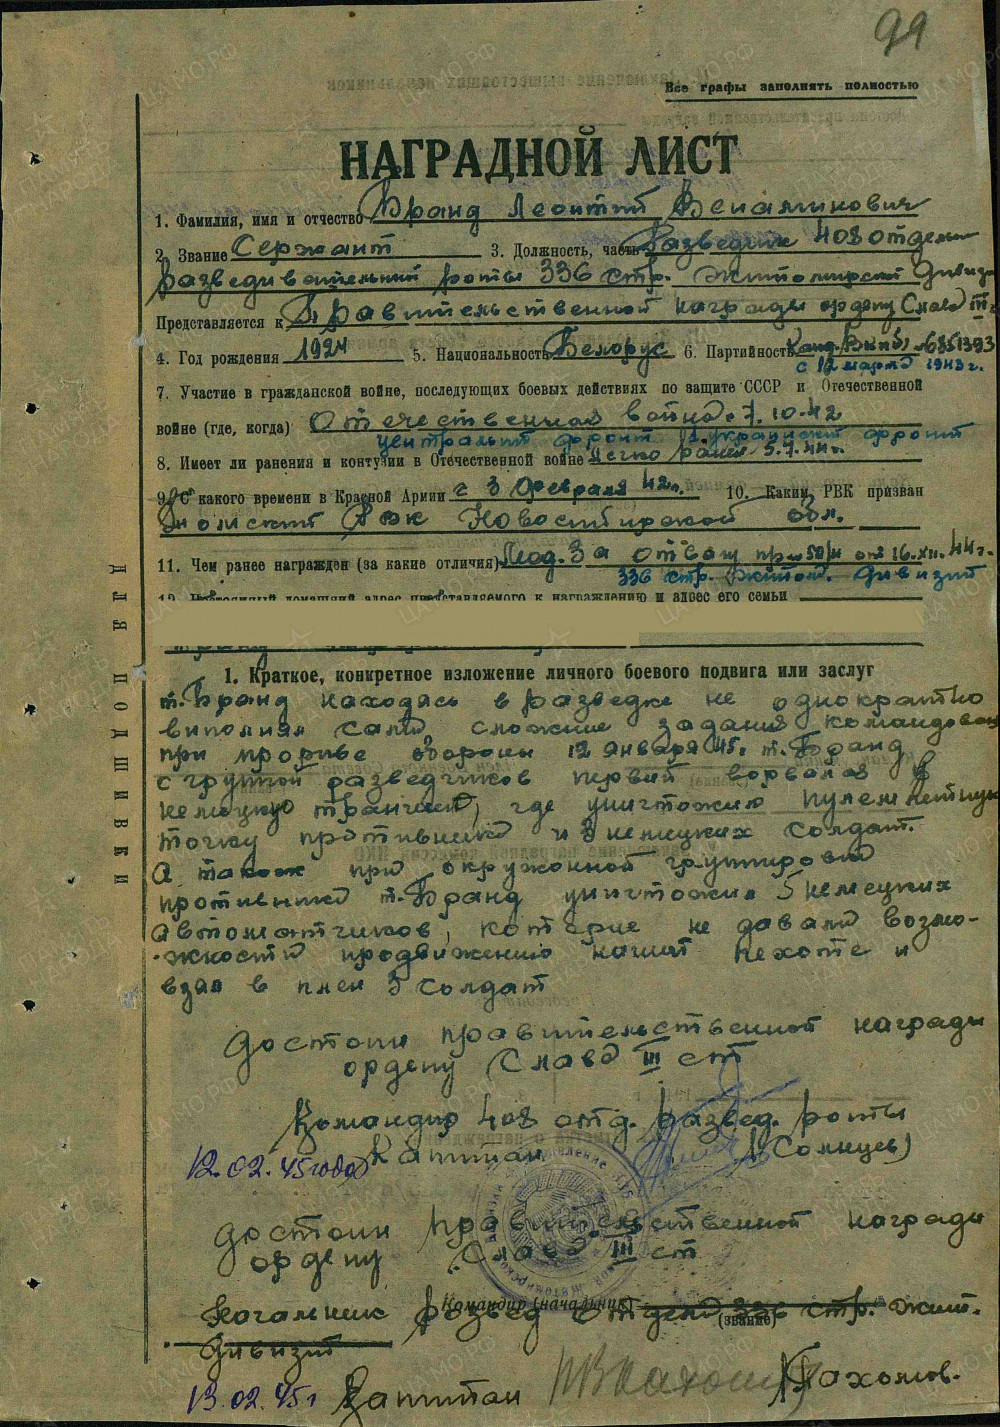 99
Все графы заполнять полностью
НАГРАДНОЙ ЛИСТ
1. Фамилия, имя и отчество Бранд Леонтий Вениаминович
2. Звание Сержант 3. Должность, часть Разведчик 408 отдельн
Разведивательный роты 336 стр. Житомирской Дивизи
Представляется к Правительственной награды ордену Слава III
4. Год рождения 1924 5. Национальность Белорус 6. Партийность Канд. ВКП(б) №6851393
с 12 марта 1943г.
7. Участие в гражданской войне, последующих боевых действиях по защите СССР и Отечественной
войне (где, когда) Отечественная война с 7.10.42
централый фронт 1 украинский фронт
8. Имеет ли ранения и контузии в Отечественной войне Легко ранен 5.7.44г.
9. С какого времени в Красной Армии с 3 Февраля 42г. 10. Каким РВК призван
РВК Новосибирской обл.
11. Чем ранее награжден (за какие отличия) Мед. За отвагу пр № 59/н от 16.XII.44г.
336 стр. Житом. Дивизий
12. Постоянный домашний адрес представляемого к награждению и адрес его семьи
ДЛЯ ПОДШИВКИ
1. Краткое, конкретное изложение личного боевого подвига или заслуг
т. Бранд находясь в разведке не однократно
виполнял сами, сложние задания командован
при прорыве обороны 12 января 45г. т. Бранд
с групой разведчиков первий ворвался в
немецкую траншею, где уничтожил пулеметную
точку противника и 3 немецких солдат.
А также при окружонной групировки
противника т. Бранд уничтожил 5 немецких
автоматчиков, которие не давали возмо-
жности продвижению нашей пехоте и
взял в плен 3 солдат
Достоин правительственной награди
ордену Слава III ст
Командир 408 отд. развед. роты
12.02.45 года Капитан (Солнцев)
Достоин правительственной награди
ордену Слава III ст
Командир (начальник)
(звание)
Начальник развед отдела 336 стр. Жит.
Дивизий
13.02.45г Капитан Пахомов.